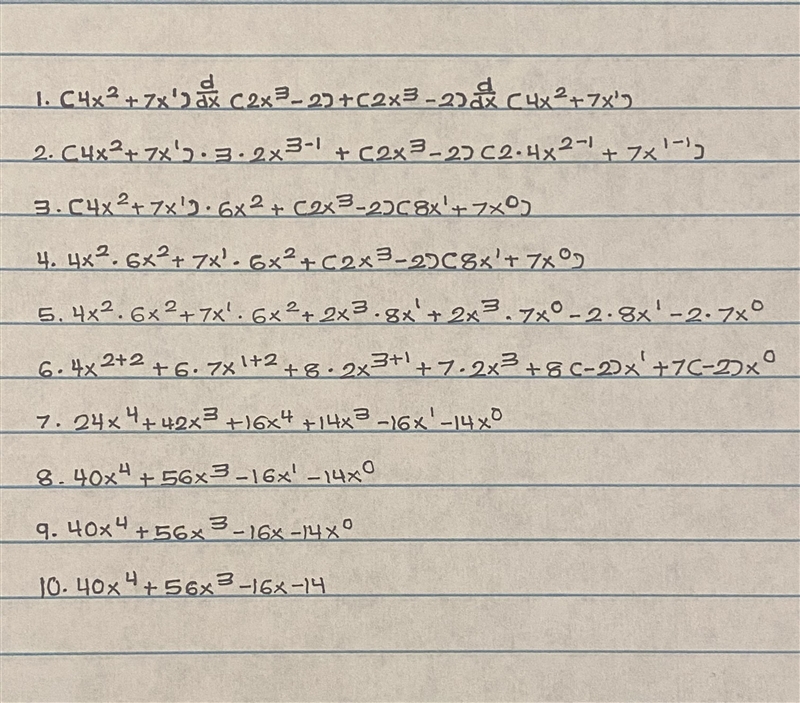 1. (4x² + 7x¹) d/dx (2x³ - 2) + (2x³ - 2) d/dx (4x² + 7x¹)
2. (4x² + 7x¹) · 3 · 2x³⁻¹ + (2x³ - 2) (2 · 4x²⁻¹ + 7x¹⁻¹)
3. (4x² + 7x¹) · 6x² + (2x³ - 2) (8x¹ + 7x⁰)
4. 4x² · 6x² + 7x¹ · 6x² + (2x³ - 2) (8x¹ + 7x⁰)
5. 4x² · 6x² + 7x¹ · 6x² + 2x³ · 8x¹ + 2x³ · 7x⁰ - 2 · 8x¹ - 2 · 7x⁰
6. 4x²⁺² + 6 · 7x¹⁺² + 8 · 2x³⁺¹ + 7 · 2x³ + 8 (-2)x¹ + 7(-2)x⁰
7. 24x⁴ + 42x³ + 16x⁴ + 14x³ - 16x¹ - 14x⁰
8. 40x⁴ + 56x³ - 16x¹ - 14x⁰
9. 40x⁴ + 56x³ - 16x - 14x⁰
10. 40x⁴ + 56x³ - 16x - 14